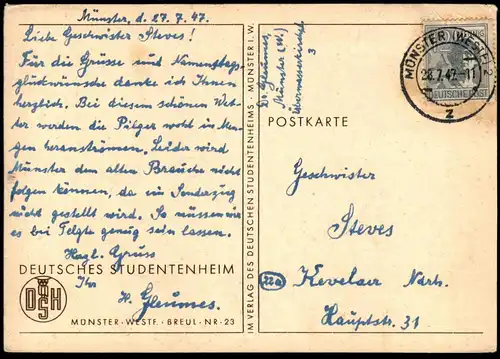 Münster, d. 27.7.47.
Liebe Geschwister Steves!
Für die Grüsse und Namenstags-
glückwünsche danke ich Ihnen
herzlich. Bei diesem schönen Wet-
ter werden die Pilger wohl in Men-
gen heranströmen. Leider wird
Münster dem alten Brauche nicht
folgen können, da ein Sonderzug
nicht gestellt wird. So müssen wir
es bei Telgte genug sein lassen.
Hzgl. Gruss
Ihr
H. Gleumes.
DEUTSCHES STUDENTENHEIM
DSH
MÜNSTER · WESTF. · BREUL · NR · 23
IM VERLAG DES DEUTSCHEN STUDENTENHEIMS · MÜNSTER I. W.
Dr. Gleumes,
Münster (W)
Überwasserkirchpl.
3
POSTKARTE
MÜNSTER (WESTF) 2
28.7.47.-11
z
DEUTSCHE POST
Geschwister
Steves
22a
Kevelaer Nrh.
Hauptstr. 31